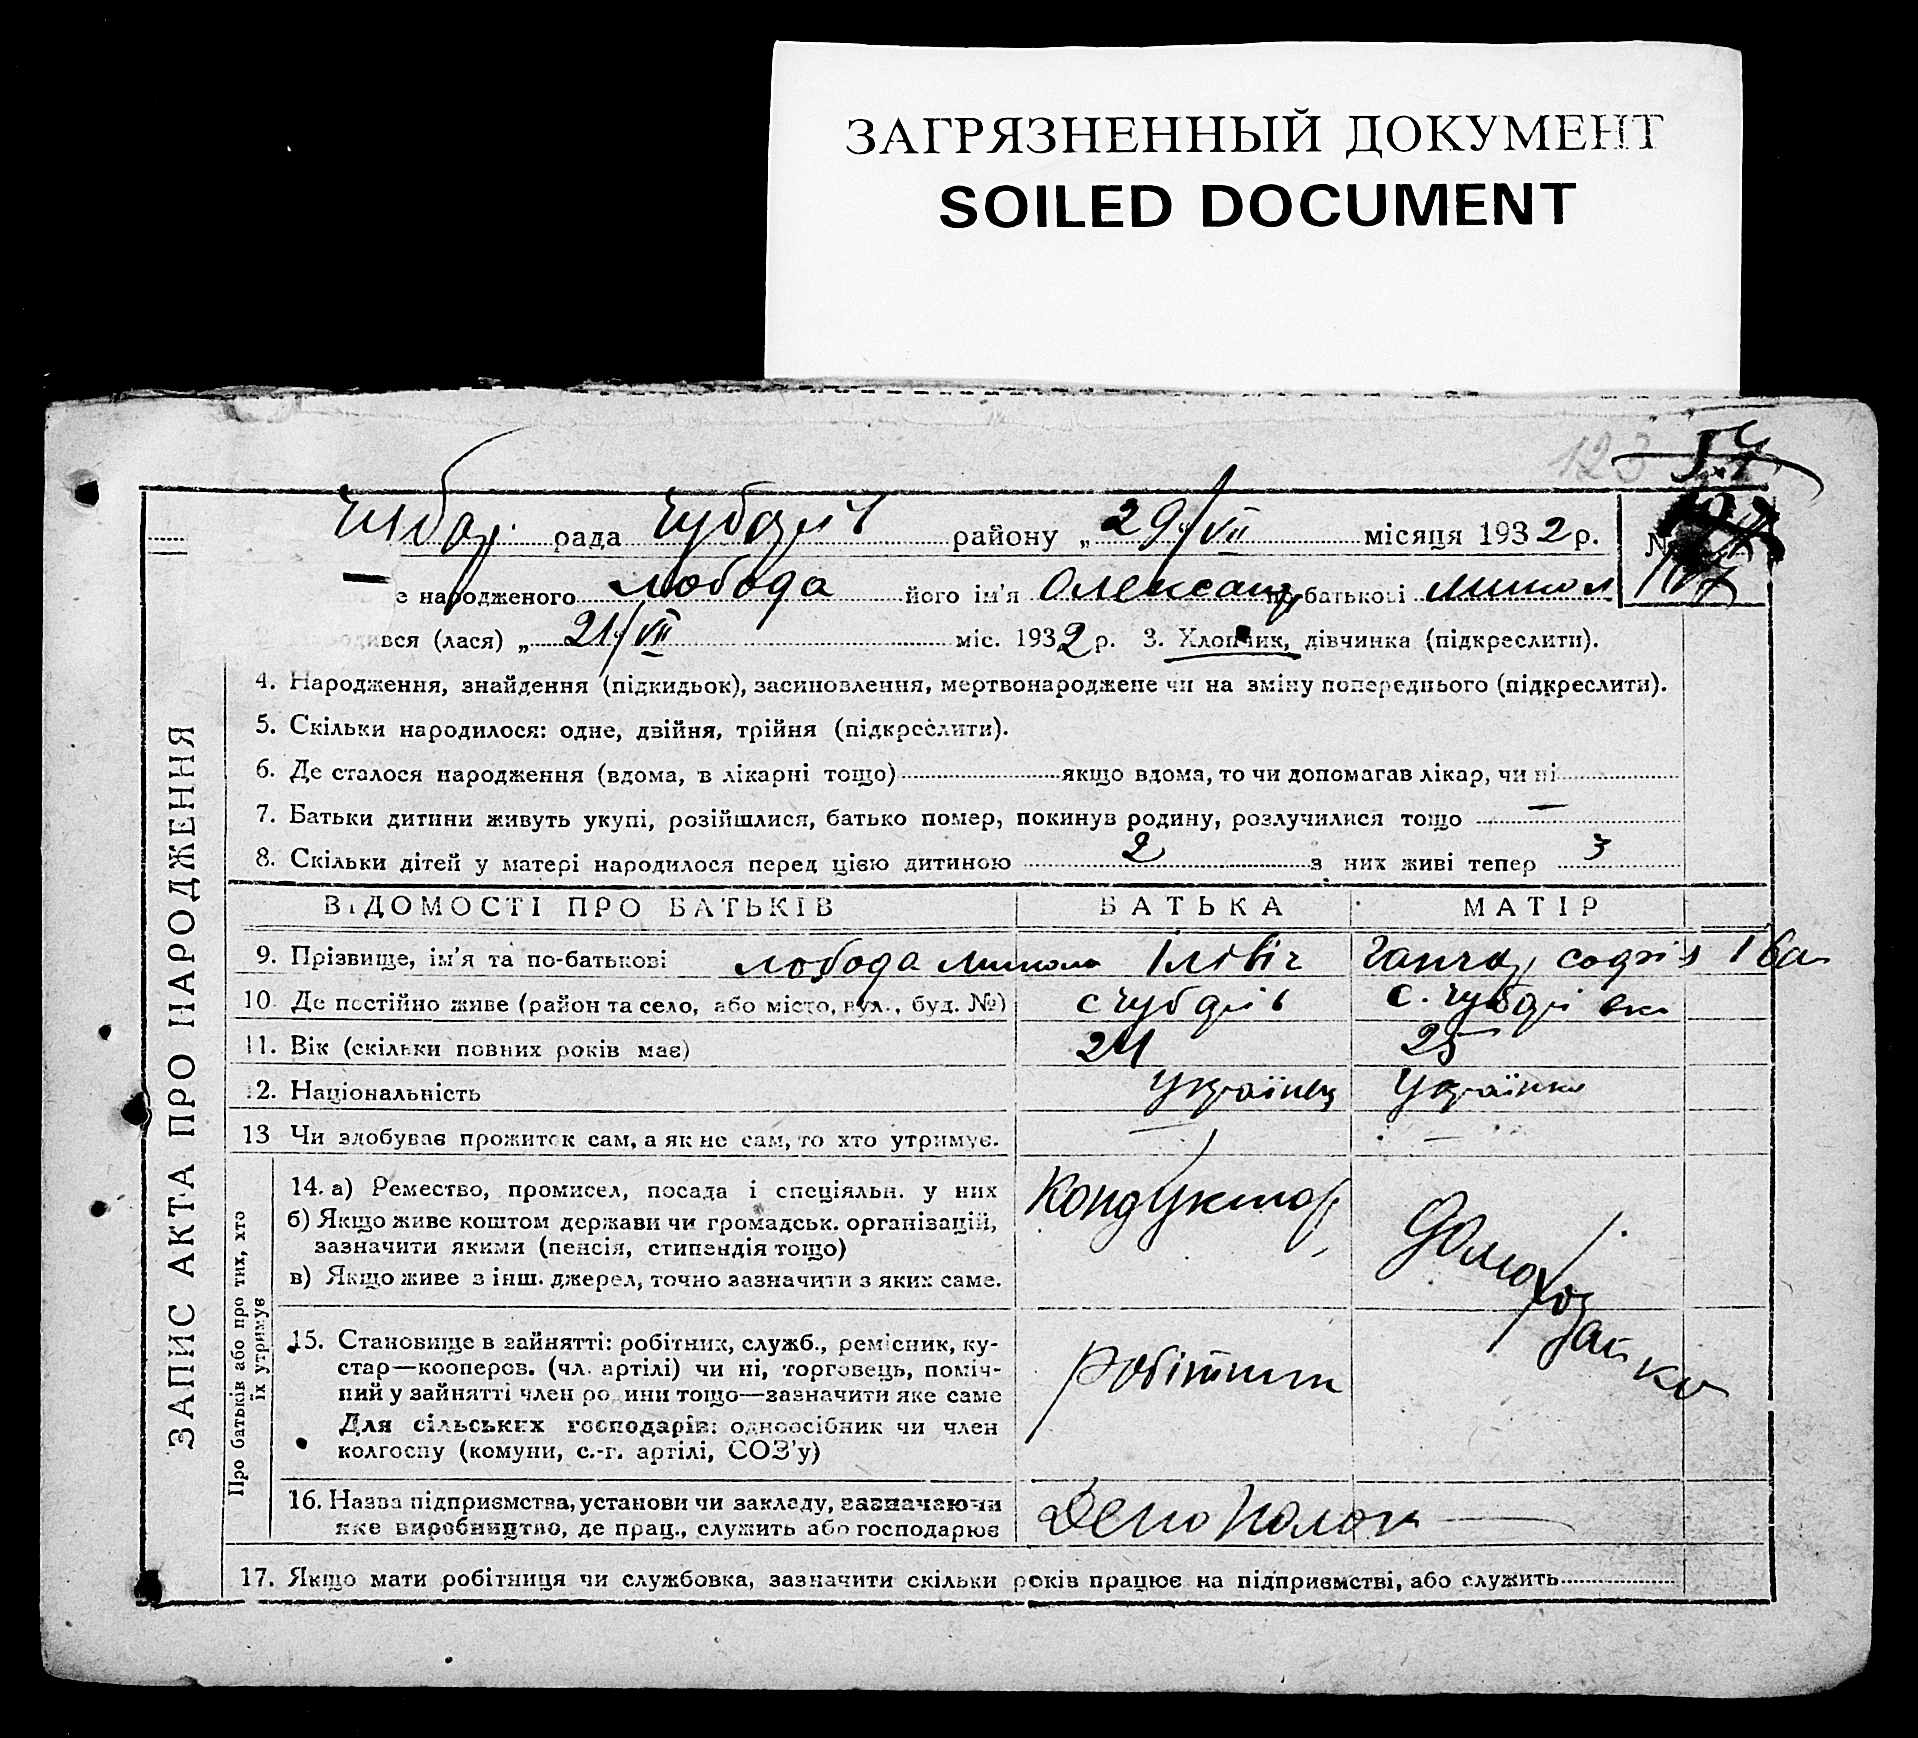 ЗАГРЯЗНЕННЫЙ ДОКУМЕНТ
SOILED DOCUMENT
123
рада району „29/VII місяця 1932 р. №
народженого Лобода його ім'я Олександр батькові Микол
(лася) „21/VII міс. 1932 р. 3. Хлопчик, дівчинка (підкреслити).
4. Народження, знайдення (підкидьок), засиновлення, мертвонароджене чи на зміну попереднього (підкреслити).
5. Скільки народилося: одне, двійня, трійня (підкреслити).
6. Де сталося народження (вдома, в лікарні тощо) якщо вдома, то чи допомагав лікар, чи ні
7. Батьки дитини живуть укупі, розійшлися, батько помер, покинув родину, розлучилися тощо —
8. Скільки дітей у матері народилося перед цією дитиною 2 з них живі тепер 3
ВІДОМОСТІ ПРО БАТЬКІВ БАТЬКА МАТІР
9. Прізвище, ім'я та по-батькові Лобода Микола Ілівіч
10. Де постійно живе (район та село, або місто, вул., буд. №)
11. Вік (скільки повних років має) 24 25
12. Національність Українец Українка
13 Чи здобуває прожиток сам, а як не сам, то хто утримує. — —
14. а) Ремество, промисел, посада і спеціяльн. у них Кондуктор Домохозайка
б) Якщо живе коштом держави чи громадськ. організацій,
зазначити якими (пенсія, стипендія тощо)
в) Якщо живе з інш. джерел, точно зазначити з яких саме.
15. Становище в зайнятті: робітник, служб., ремісник, ку-
стар—кооперов. (чл. артілі) чи ні, торговець, поміч- Робітник
ний у зайнятті член родини тощо—зазначити яке саме
Для сільських господарів: одноосібник чи член
колгоспу (комуни, с.-г. артілі, СОЗ'у)
16. Назва підприємства, установи чи закладу, зазначаючи Депо
яке виробництво, де прац., служить або господарює
17. Якщо мати робітниця чи службовка, зазначити скільки років працює на підприємстві, або служить
ЗАПИС АКТА ПРО НАРОДЖЕННЯ
Про батьків або про тих, хто
їх утримує